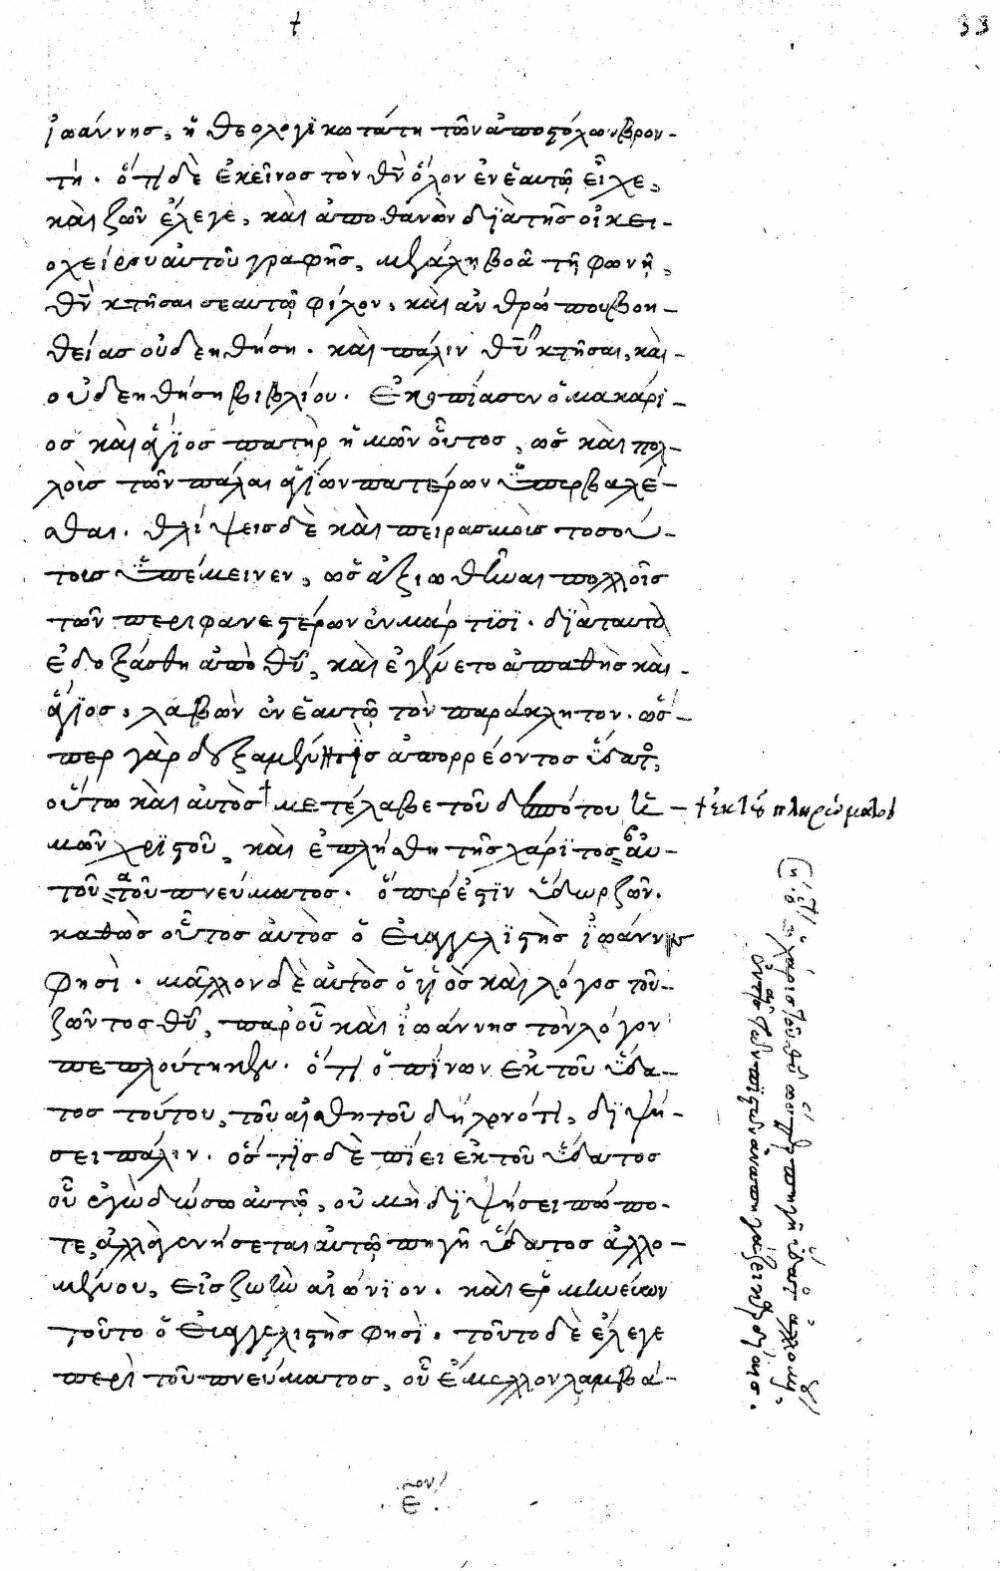 †
33
ἰωάννης, ἡ θεολογϊκωτάτη τῶν ἀποστόλων βρον-
τή. ὅτι δὲ ἐκεῖνος τὸν θν ὅλον ἐν ἑαυτῷ εἶχε,
καὶ ζῶν ἔλεγε, καὶ ἀποθανὼν δϊὰ τῆς οἰκει-
οχείρου αὐτοῦ γραφῆς, μεγάλῃ βοᾶ τῇ φωνῇ,
θν κτῆσαι σεαυτῷ φίλον, καὶ ἀνθρώπου βοη-
θείας οὐ δεηθήση. καὶ πάλιν θν κτῆσαι, καὶ
οὐ δεηθήση βιβλίου. ἐκοπίασεν ὁ μακάρι-
ος καὶ ἅγϊος πατὴρ ἡμῶν οὗτος, ὡς καὶ πολ-
λοὺς τῶν πάλαι ἁγϊων πατέρων ὑπερβαλέ-
σθαι. θλίψεις δὲ καὶ πειρασμοὺς τοσού-
τοις ὑπέμεινεν, ὡς ἀξιωθῆναι πολλοῖς
τῶν περιφανεστέρων ἐν μάρτϊσϊ. δϊὰ ταυτὸ
ἐδοξάσθη ἀπὸ θυ, καὶ ἐγένετο ἀπαθὴς καὶ
ἅγϊος, λαβὼν ἐν ἑαυτῷ τὸν παράκλητον. ὥσ-
περ γὰρ δεξαμενῆς ἀπορρέοντος ὕδατος,
οὕτω καὶ αὐτὸς † μετέλαβε τοῦ δεσπότου ἡ- † ἐκ τοῦ πληρώματος
μῶν χρϊστοῦ, καὶ ἐπλήσθη τῆς χάρϊτος αὐ-
τοῦ τοῦ πνεύματος. ὅπερ ἐστϊν ὕδωρ ζῶν.
καθὼς οὗτος αὐτὸς ὁ εὐαγγελϊστὴς ἰωάννης
φησὶ. μᾶλλον δὲ αὐτὸς ὁ υἱὸς καὶ λόγος τοῦ
ζῶντος θυ, παρ' οὗ καὶ ἰωάννης τὸν λόγον
πεπλούτηκεν. ὅτι ὁ πίνων ἐκ τοῦ ὕδα-
τος τούτου, τοῦ αἰσθητοῦ δηλονότι, δϊψή-
σει πάλιν. ὅς τϊς δὲ πίει ἐκ τοῦ ὕδατος
οὗ ἐγὼ δώσω αὐτῷ, οὐ μὴ δϊψήσει πώπο-
τε, ἀλλὰ γενήσεται αὐτῷ πηγὴ ὕδατος ἁλλο-
μένου, εἰς ζωὴν αἰώνϊον. καὶ ἑρμηνεύων
τοῦτο ὁ εὐαγγελϊστὴς φησϊ. τοῦτο δὲ ἔλεγε
περὶ τοῦ πνεύματος, οὗ ἔμελλον λαμβά-